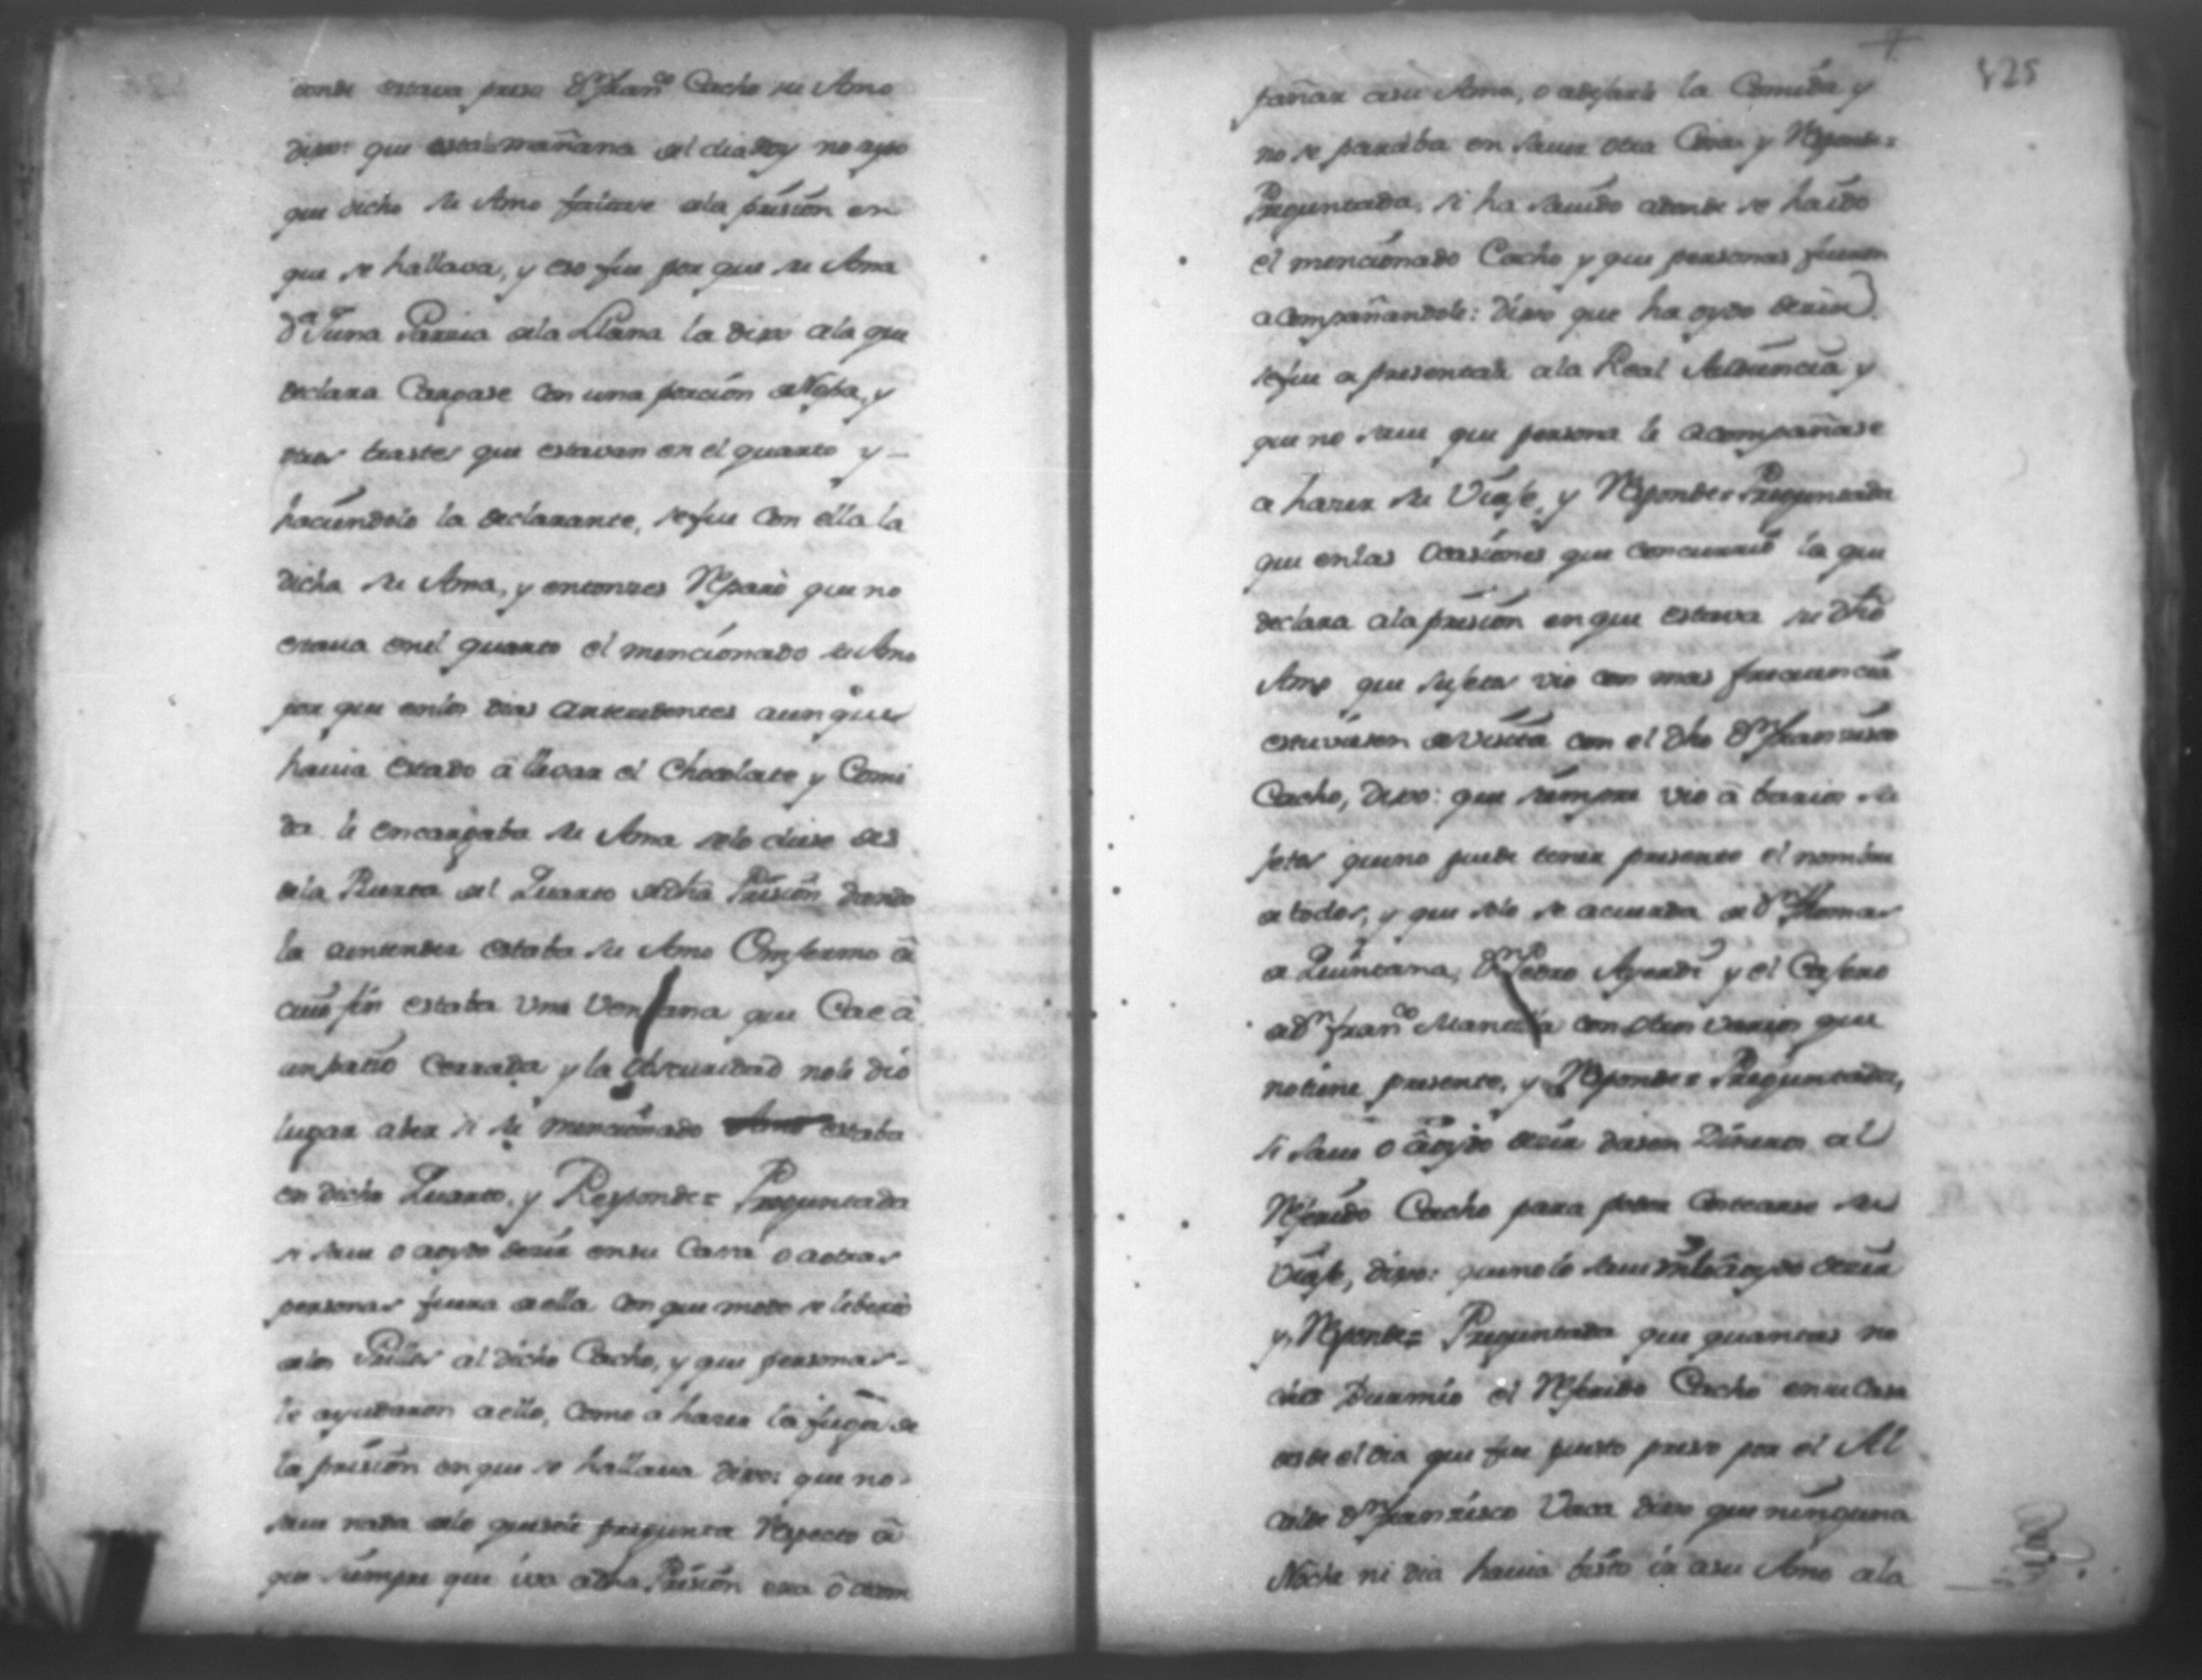 donde estava preso Dn Franco Cacho su Amo
dixo: que esta mañana del dia doy no ayo
que dicho su Amo faltase dela prision en
que se hallava, y eso fue por que su Ama
Da Juna Parria dela Llama la dixo ala que
declara Cargase con una porcion de Ropa, y
otros trastes que estavan en el quarto y -
haciendolo la declarante, se fue con ella la
dicha su Ama, y entonzes Reparò que no
estaua enel quarto el mencionado su Amo
por que enlos dias antecedentes aunque
hauia estado â llevar el Chocolate y Comi
da le encargaba su Ama selo diese des
dela Puerta del Quarto dedha Prision dando
la aentender estaba su Amo Emfermo â
cuio fin estaba Una Ventana que Cae â
un patio Cerrada y la obscuridad nole diò
lugar aber si su mencionado Amo estaba
en dicho Quarto, y Responde = Preguntada
si saue o aoydo dezir ensu Casa o aotras
personas fuera de ella con que modo se liberto
delos Grillos al dicho Cacho, y que personas -
le ayudaron aello, como a hazer la fuga de
la prision en que se hallaua dixo: que no -
saue nada delo quesele pregunta Respecto â
que siempre que iva adha Prision era ô acom
825
pañar asu Ama, o adejarle la Comida y
no se paraba en sauer otra Cosa y Responde =
Preguntada, si ha sauido adonde se ha ido
el mencionado Cacho y que personas fueron
acompañandole: dixo que ha oydo dezir
sefue a presentar ala Real Audiencia y
que no saue que persona le acompañase
a hazer su Viaje, y Responde = Preguntada
que enlas ocasiones que concurriò la que
declara ala prision en que estava su dho
Amo que sujetos vio con mas frecuencia
estuviesen de visita con el dho Dn Franzisco
Cacho, dixo: que siempre vio â barios su
jetos queno puede tener presente el nombre
de todos, y que solo se acuerda de Dn Thomas
de Quintana, Dn Pedro Ayerdi y el Casero
de Dn Franco Mantilla con otros varios que
notiene presente, y Responde = Preguntada,
si saue o â oydo dezir dasen Dineros al
Referido Cacho para poder Costearse su
Viaje, dixo: queno lo saue nilo â oydo dezir
y Responde = Preguntada que quantas no
ches Durmio el Referido Cacho en su Casa
desde el dia que fue puesto preso por el Al
calde Dn Franzisco Vaca dixo que ninguna
Noche ni dia hauia bisto ir asu Amo ala